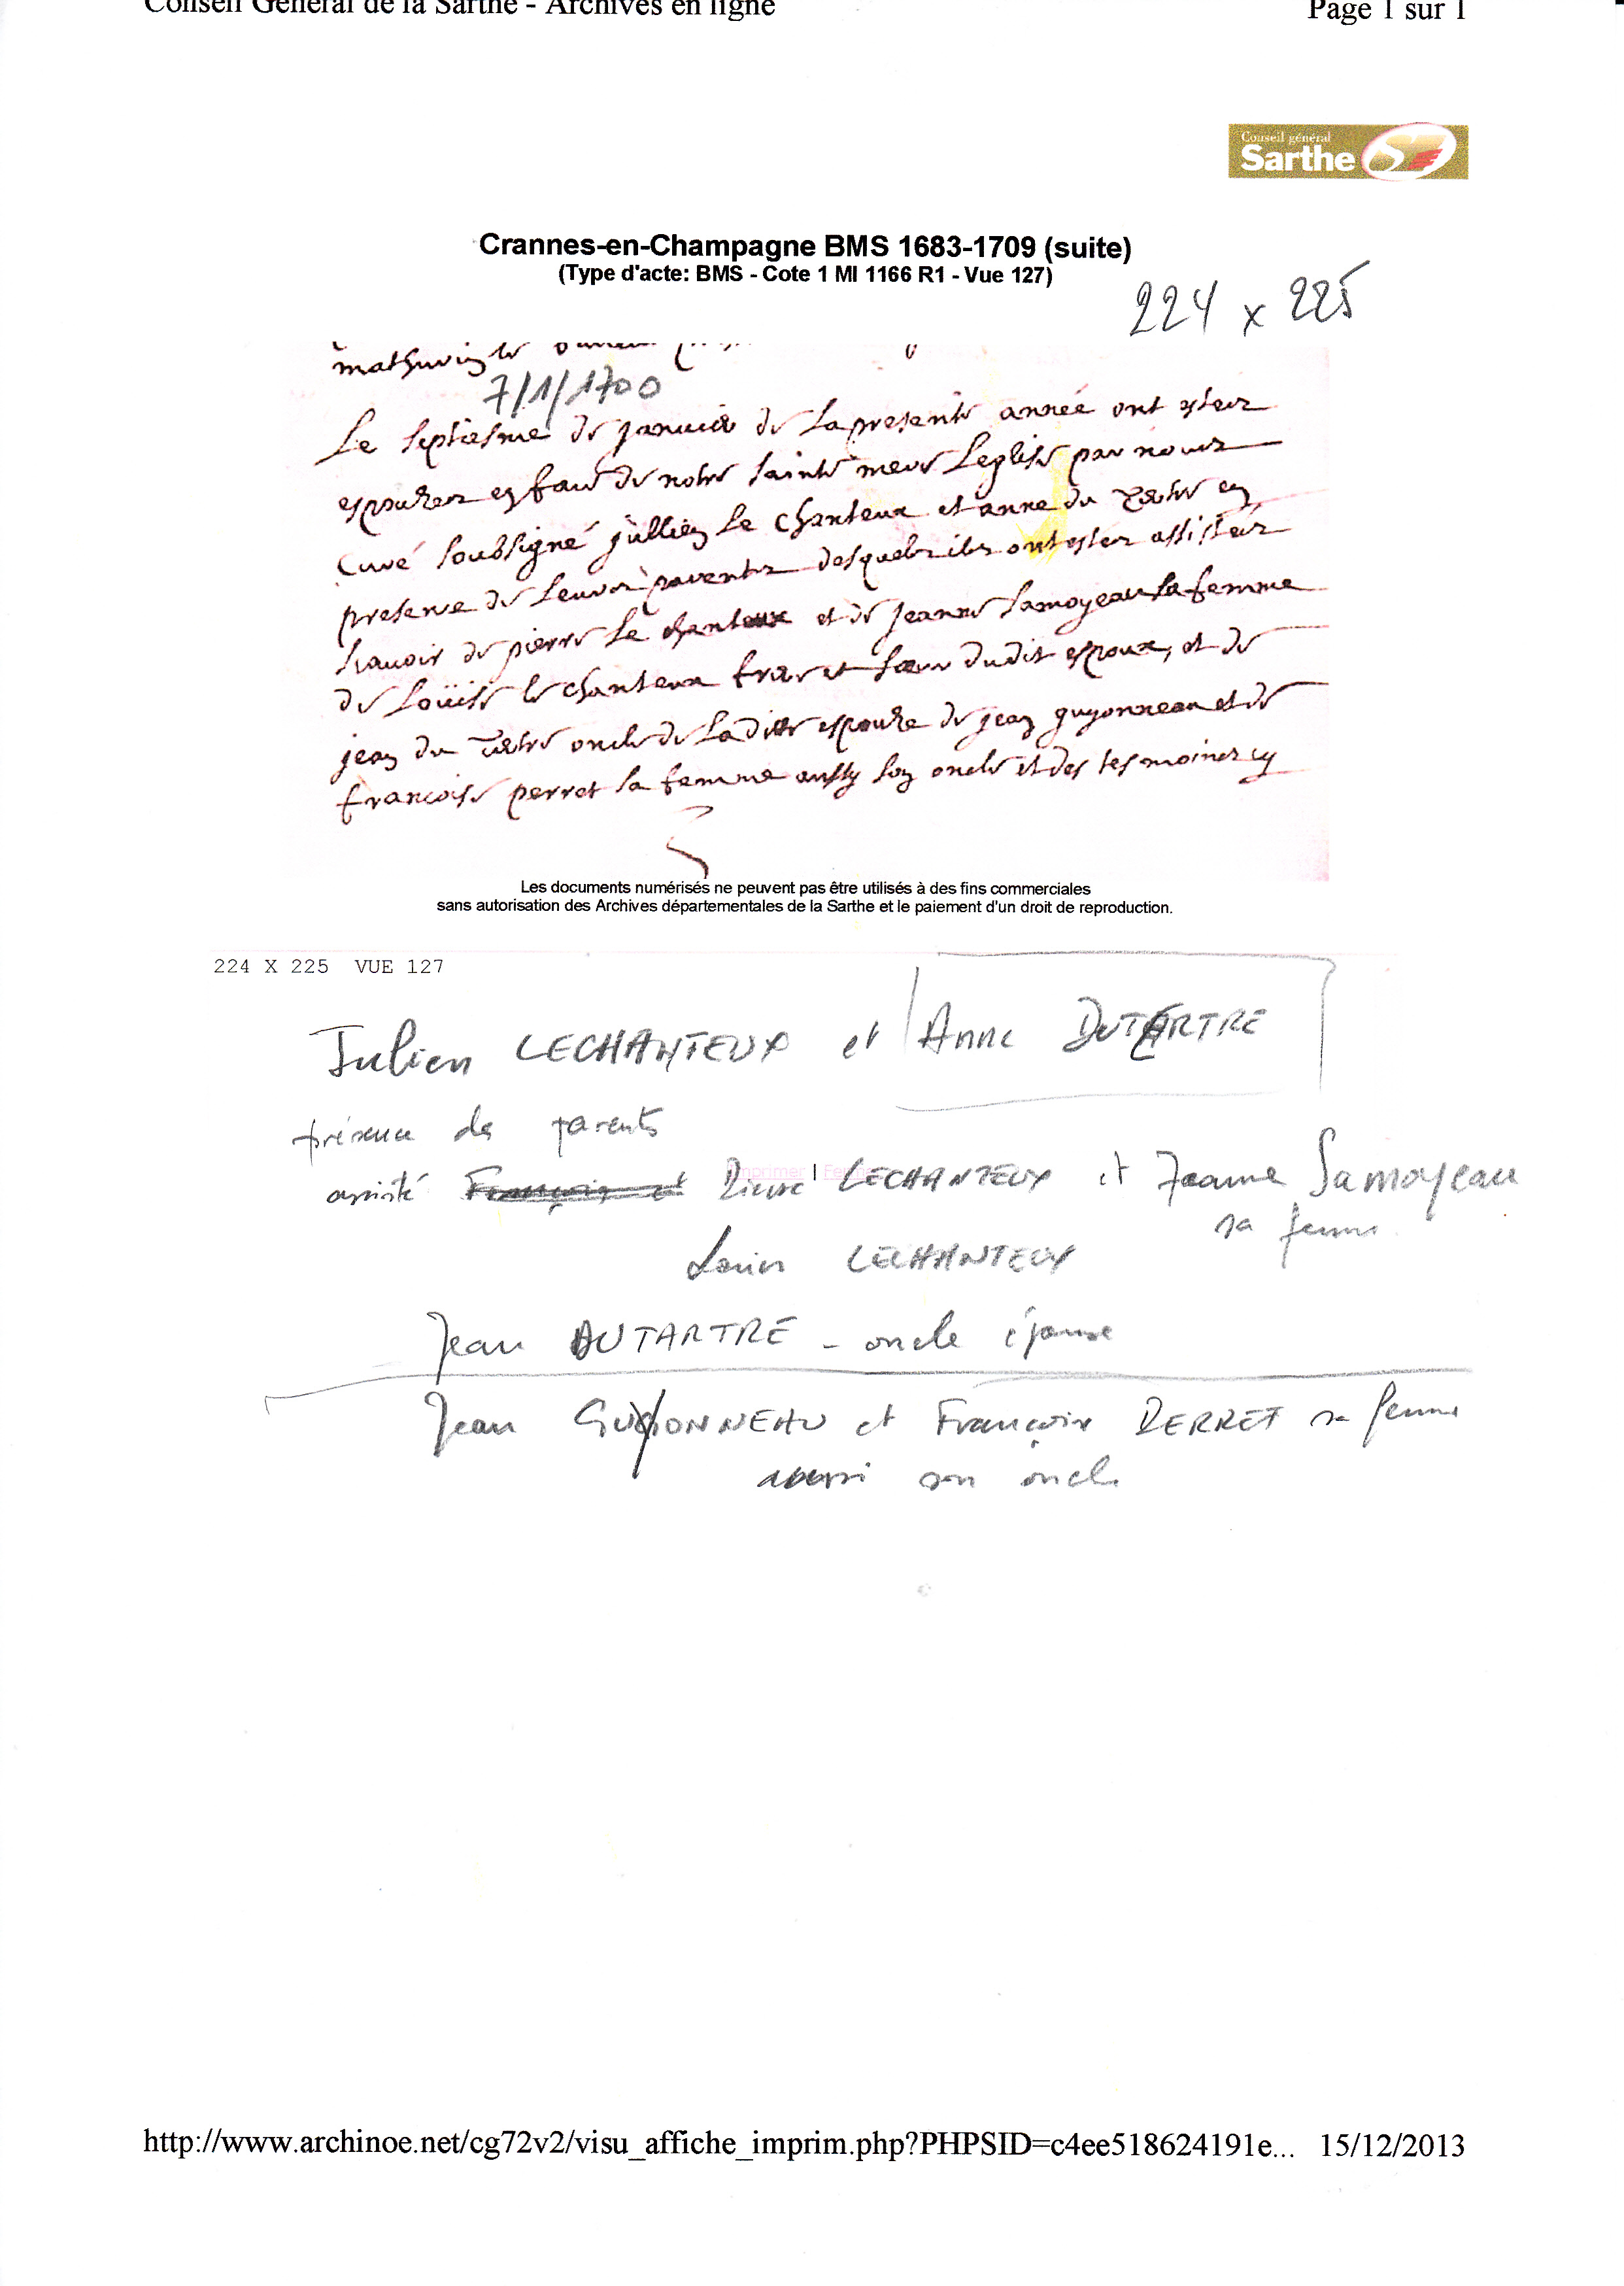 Conseil Général de la Sarthe - Archives en ligne
Page 1 sur 1
Conseil général
Sarthe
Crannes-en-Champagne BMS 1683-1709 (suite)
(Type d'acte: BMS - Cote 1 MI 1166 R1 - Vue 127)
224 x 225
mathurin le
7/1/1700
Le septiesme de janvier de la presente année ont estez
espousez en face de notre sainte mere Leglise par nous
Curé soubsigné jullien Le chanteux et anne du tertre en
presence de leurs parents desquels ils ont estez assistez
scavoir de pierre Le chanteux et de jeanne samoyeau sa femme
de Loüise le chanteux frere et sœur dudit espoux, et de
jean du tertre oncle de Laditte espouze de jean guyonneau et de
francoise perret sa femme aussy son oncle et des tesmoines cy
Les documents numérisés ne peuvent pas être utilisés à des fins commerciales
sans autorisation des Archives départementales de la Sarthe et le paiement d'un droit de reproduction.
224 X 225 VUE 127
Julien LECHANTEUX et Anne DUTERTRE
présence des parents
Imprimer | Fermer
assisté François et Pierre LECHANTEUX et Jeanne Samoyeau
sa femme
Louis LECHANTEUX
Jean DUTARTRE - oncle épouse
Jean GUYONNEAU et Françoise PERRET sa femme
aussi son oncle
http://www.archinoe.net/cg72v2/visu_affiche_imprim.php?PHPSID=c4ee518624191e... 15/12/2013